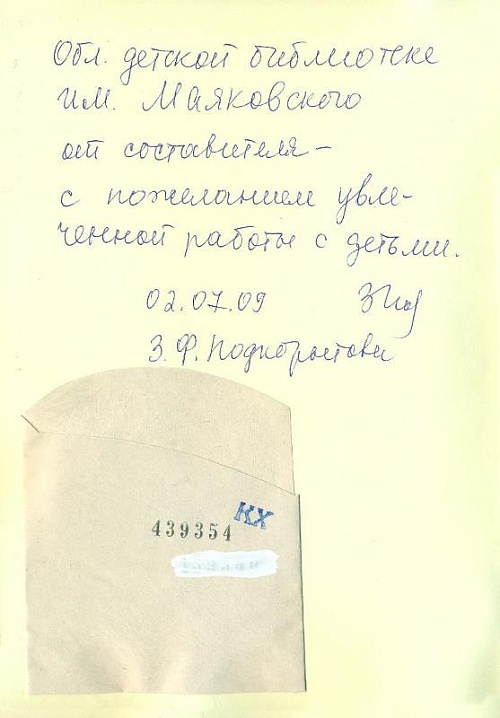 Обл. детской библиотеке
им. Маяковского
от составителя –
с пожеланием увле-
ченной работы с детьми.
02.07.09
З. Ф.
КХ
439354